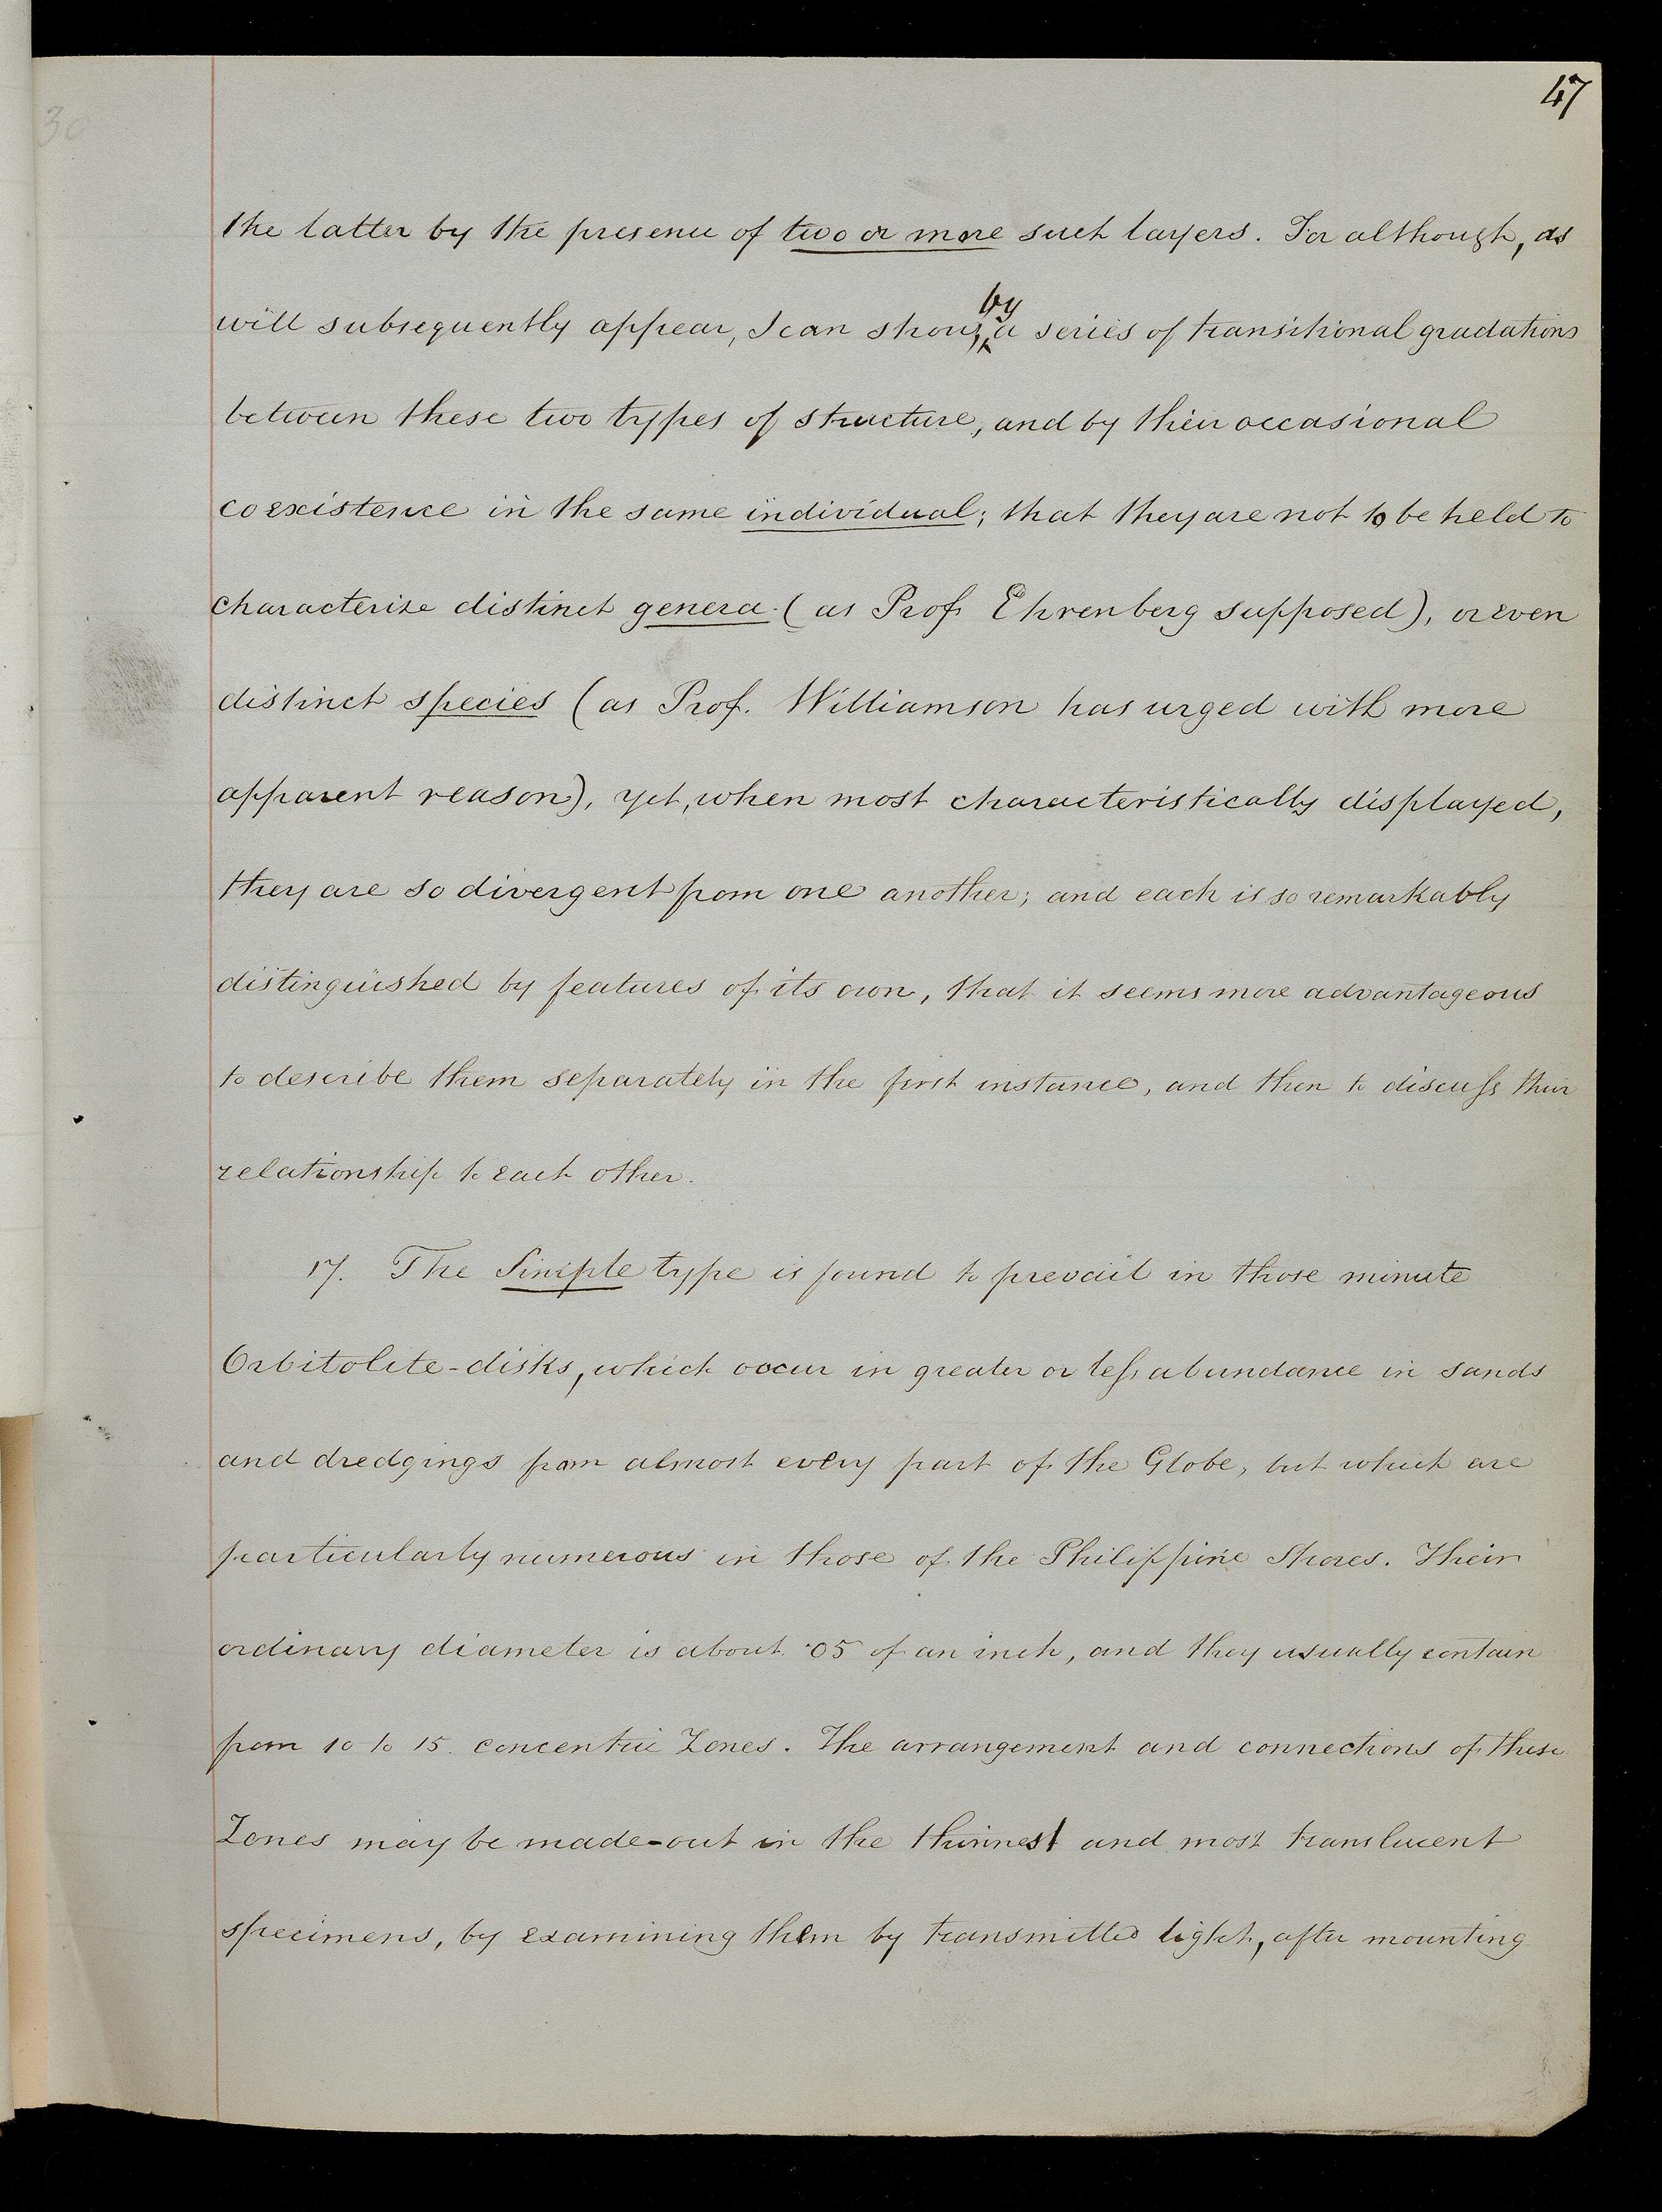 47
30
the latter by the presence of two or more such layers. For although, as
will subsequently appear, I can show, by a series of transitional gradations
between these two types of structure, and by their occasional
coexistence in the same individual; that they are not to be held to
characterize distinct genera (as Prof. Ehrenberg supposed), or even
distinct species (as Prof. Williamson has urged with more
apparent reason), yet, when most characteristically displayed,
they are so divergent from one another; and each is so remarkably
distinguished by features of its own, that it seems more advantageous
to describe them separately in the first instance, and then to discuss their
relationship to each other.
17. The Simple type is found to prevail in those minute
Orbitolite-disks, which occur in greater or less abundance in sands
and dredgings from almost every part of the Globe, but which are
particularly numerous in those of the Philippine Shores. Their
ordinary diameter is about ·05 of an inch, and they usually contain
from 10 to 15 concentric Zones. The arrangement and connections of these
Zones may be made-out in the thinnest and most translucent
specimens, by examining them by transmitted light, after mounting